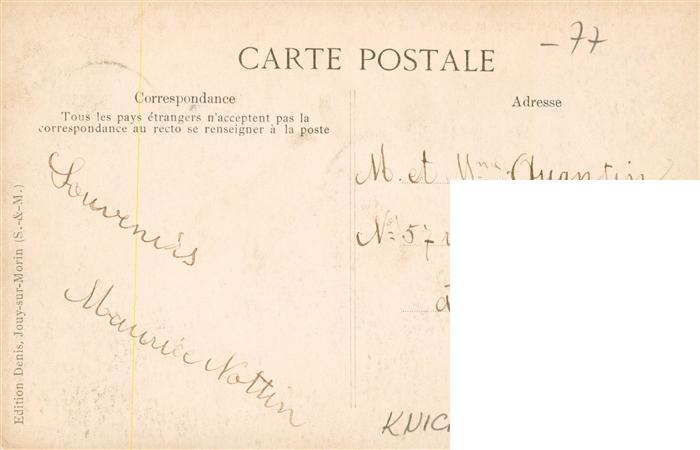 -77
CARTE POSTALE
Correspondance
Tous les pays étrangers n'acceptent pas la
correspondance au recto se renseigner à la poste
Souvenirs
Maurice Nottin
Adresse
M. et Mme Quantin
No 57
à
Edition Denis, Jouy-sur-Morin (S.-&-M.)